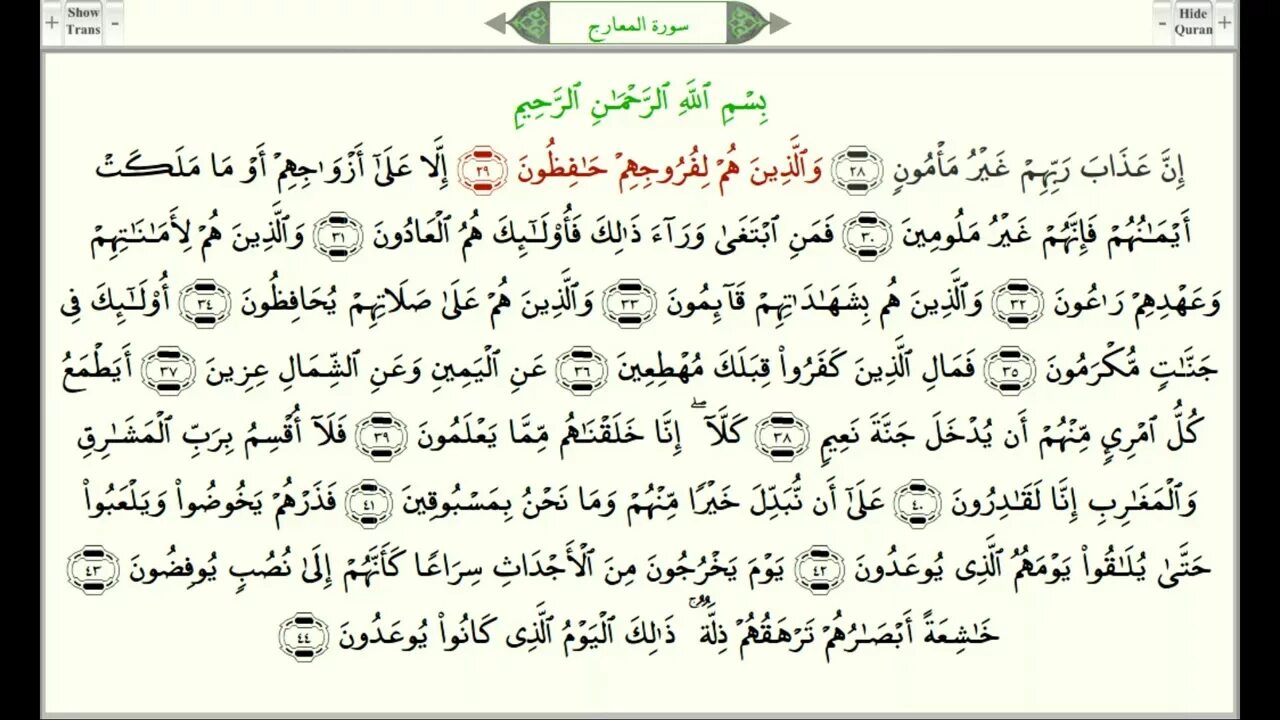 + Show Trans -
سورة المعارج
- Hide Quran +
بِسْمِ ٱللَّهِ ٱلرَّحْمَـٰنِ ٱلرَّحِيمِ
إِنَّ عَذَابَ رَبِّهِمْ غَيْرُ مَأْمُونٍ ٢٨ وَٱلَّذِينَ هُمْ لِفُرُوجِهِمْ حَـٰفِظُونَ ٢٩ إِلَّا عَلَىٰٓ أَزْوَٰجِهِمْ أَوْ مَا مَلَكَتْ
أَيْمَـٰنُهُمْ فَإِنَّهُمْ غَيْرُ مَلُومِينَ ٣٠ فَمَنِ ٱبْتَغَىٰ وَرَآءَ ذَٰلِكَ فَأُو۟لَـٰٓئِكَ هُمُ ٱلْعَادُونَ ٣١ وَٱلَّذِينَ هُمْ لِأَمَـٰنَـٰتِهِمْ
وَعَهْدِهِمْ رَٰعُونَ ٣٢ وَٱلَّذِينَ هُم بِشَهَـٰدَٰتِهِمْ قَآئِمُونَ ٣٣ وَٱلَّذِينَ هُمْ عَلَىٰ صَلَاتِهِمْ يُحَافِظُونَ ٣٤ أُو۟لَـٰٓئِكَ فِى
جَنَّـٰتٍ مُّكْرَمُونَ ٣٥ فَمَالِ ٱلَّذِينَ كَفَرُوا۟ قِبَلَكَ مُهْطِعِينَ ٣٦ عَنِ ٱلْيَمِينِ وَعَنِ ٱلشِّمَالِ عِزِينَ ٣٧ أَيَطْمَعُ
كُلُّ ٱمْرِئٍ مِّنْهُمْ أَن يُدْخَلَ جَنَّةَ نَعِيمٍ ٣٨ كَلَّآ ۖ إِنَّا خَلَقْنَـٰهُم مِّمَّا يَعْلَمُونَ ٣٩ فَلَآ أُقْسِمُ بِرَبِّ ٱلْمَشَـٰرِقِ
وَٱلْمَغَـٰرِبِ إِنَّا لَقَـٰدِرُونَ ٤٠ عَلَىٰٓ أَن نُّبَدِّلَ خَيْرًا مِّنْهُمْ وَمَا نَحْنُ بِمَسْبُوقِينَ ٤١ فَذَرْهُمْ يَخُوضُوا۟ وَيَلْعَبُوا۟
حَتَّىٰ يُلَـٰقُوا۟ يَوْمَهُمُ ٱلَّذِى يُوعَدُونَ ٤٢ يَوْمَ يَخْرُجُونَ مِنَ ٱلْأَجْدَاثِ سِرَاعًا كَأَنَّهُمْ إِلَىٰ نُصُبٍ يُوفِضُونَ ٤٣
خَـٰشِعَةً أَبْصَـٰرُهُمْ تَرْهَقُهُمْ ذِلَّةٌ ۚ ذَٰلِكَ ٱلْيَوْمُ ٱلَّذِى كَانُوا۟ يُوعَدُونَ ٤٤